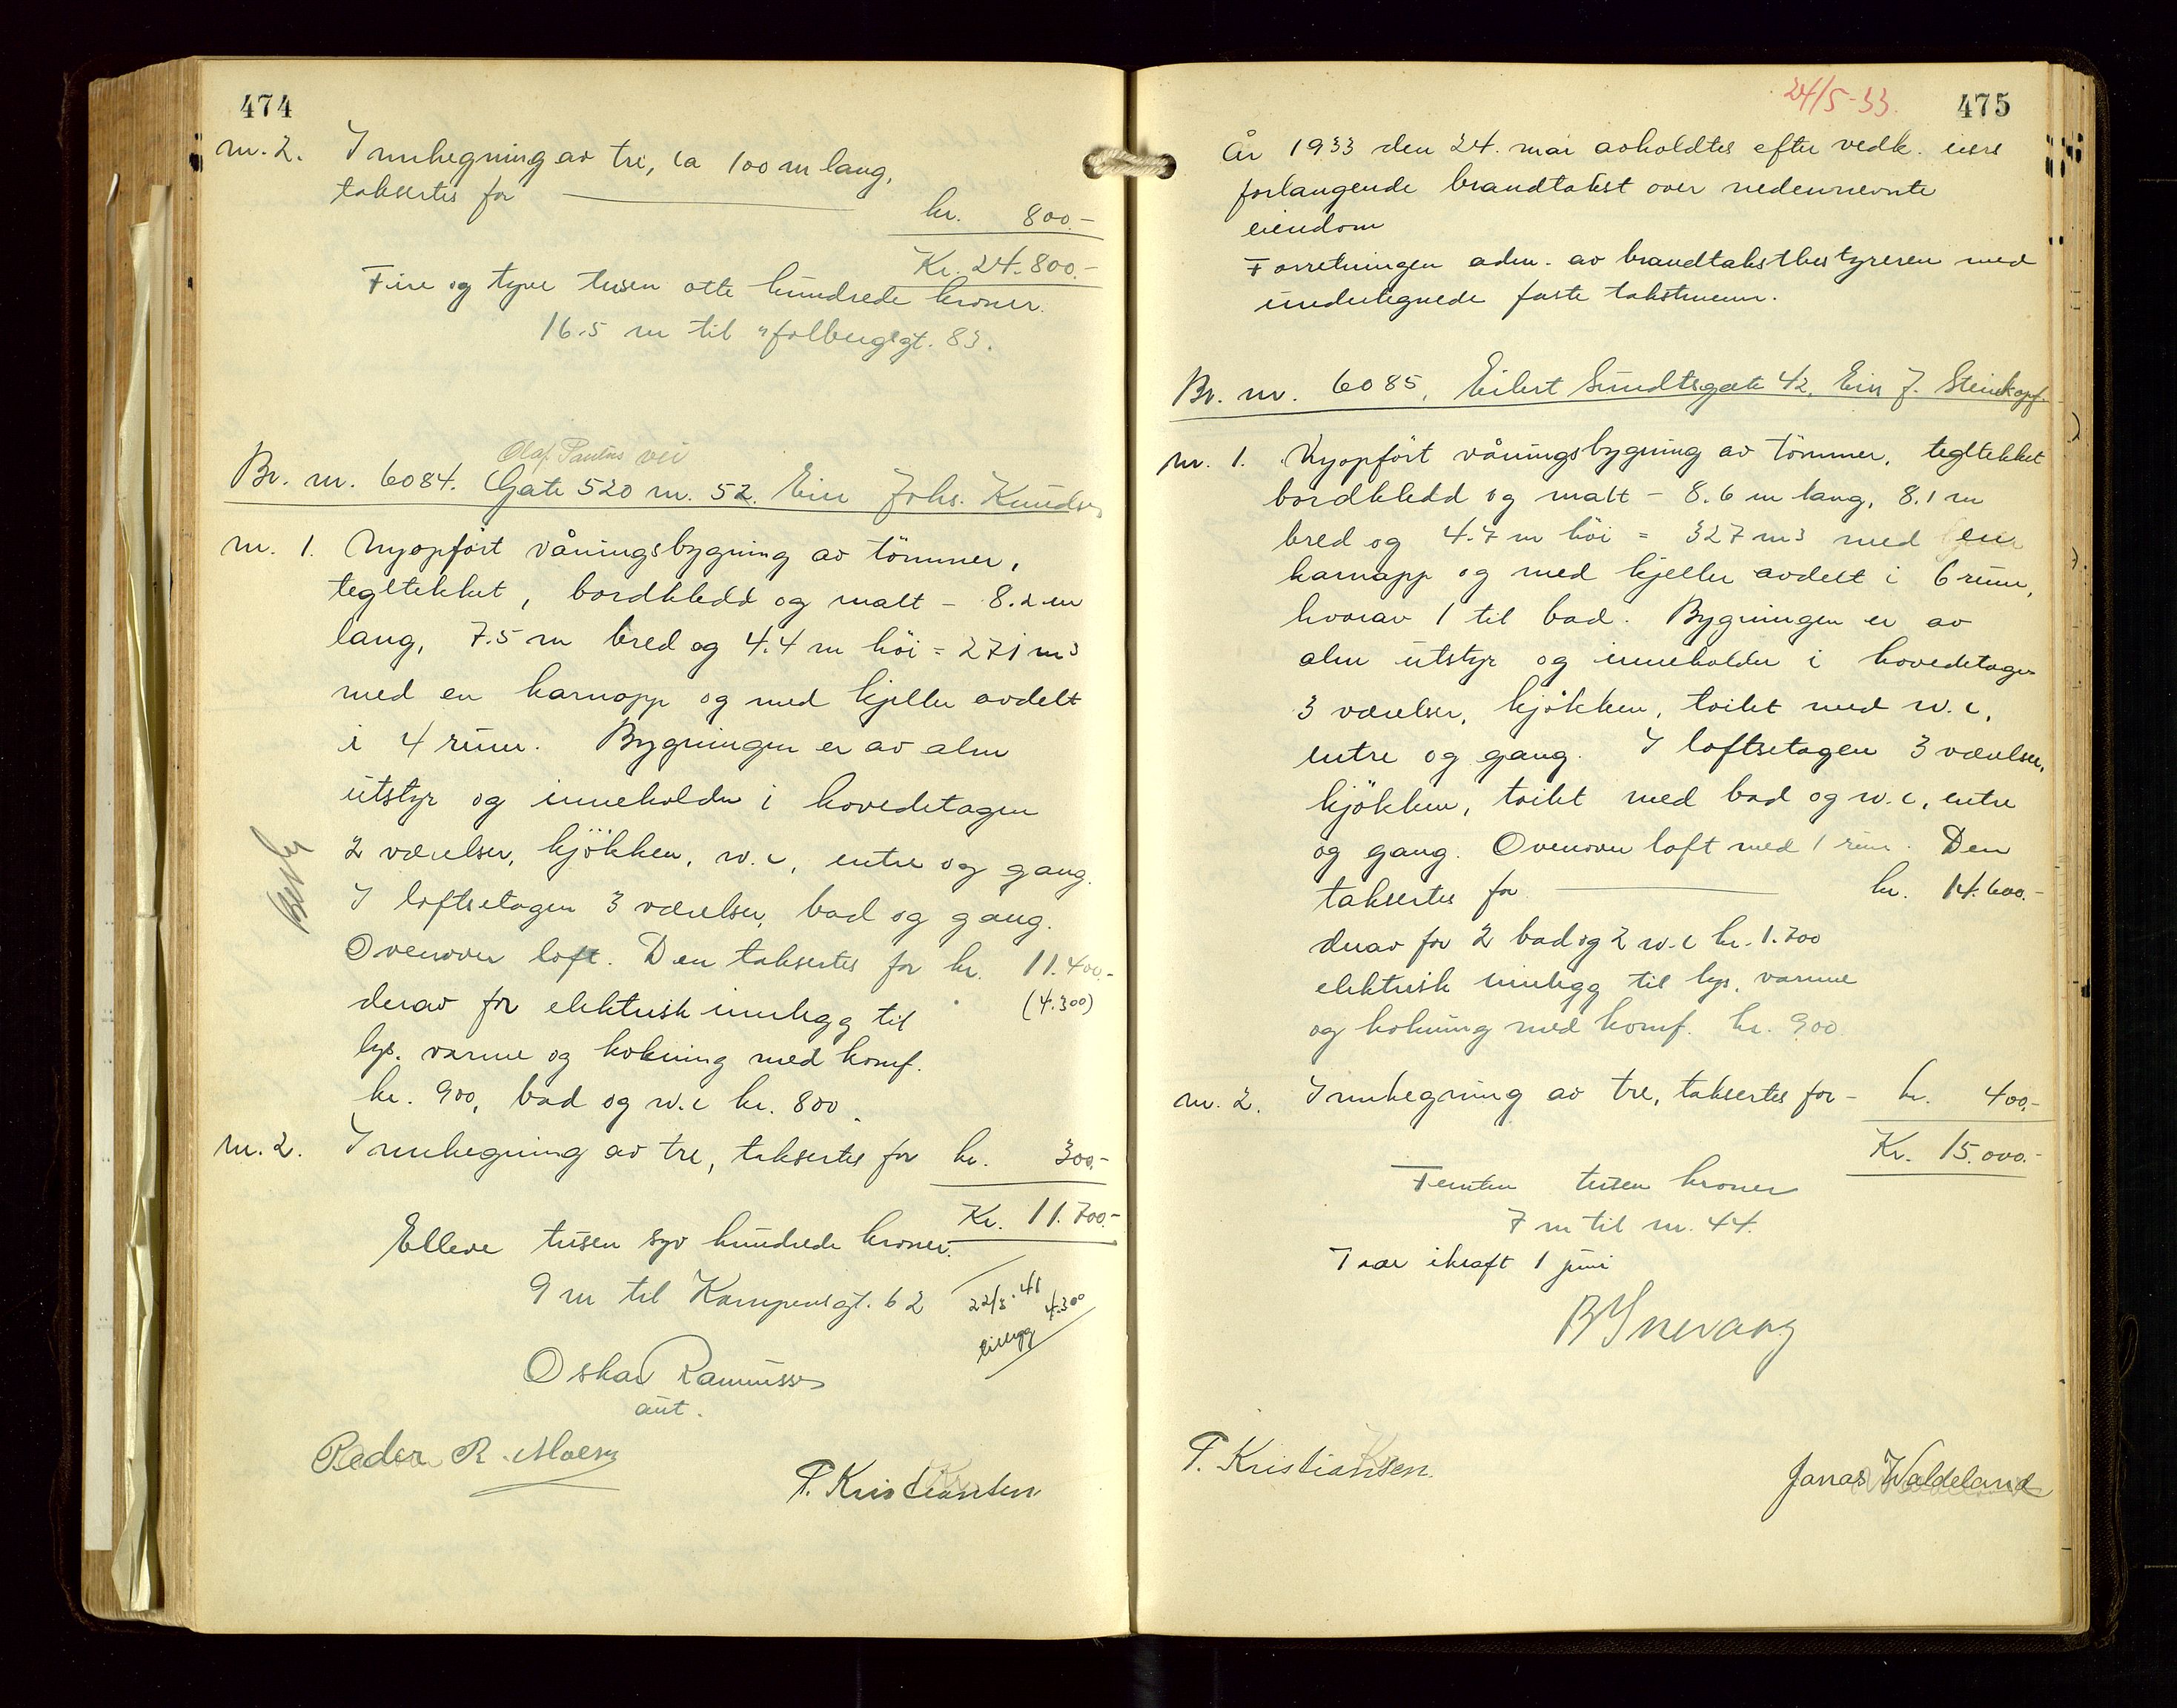 474
nr. 2. Innhegning av tre, ca 100 m lang,
taksertes for kr. 800.-
Kr. 24.800.-
Fire og tyve tusen otte hundrede kroner.
16.5 m til Holbergsgt. 83.
Olaf Paulus vei
Br. nr. 6084. Gate 520 nr. 52. Eier Johs. Knudsen
nr. 1. Nyopført våningsbygning av tömmer,
tegltekket, bordkledd og malt - 8.2 m
lang, 7.5 m bred og 4.4 m höi = 271 m3
med en karnapp og med kjeller avdelt
i 4 rum. Bygningen er av alm
utstyr og inneholder i hovedetagen
2 værelser, kjökken, w.c, entre og gang.
I loftsetagen 3 værelser, bad og gang.
Ovenover loft. Den taksertes for kr. 11.400.-
derav for elektrisk innlegg til (4.300)
lys. varme og kokning med komf.
kr. 900, bad og w.c kr. 800.
nr. 2. Innhegning av tre, taksertes for kr. 300.-
Kr. 11.700.-
Elleve tusen syv hundrede kroner.
9 m til Kampensgt. 62
22/3.41 4.300
Oskar Rasmussen
aut.
Peder R. Moen
P. Kristiansen
24/5-33.
475
År 1933 den 24. mai avholdtes efter vedk. eiers
forlangende brandtakst over nedennevnte
eiendom
Forretningen adm. av brandtakstbestyreren med
undertegnede faste takstmenn.
Br. nr. 6085, Eilert Sundtsgate 42. Eier J. Steinkopf.
nr. 1. Nyopfört våningsbygning av tömmer, tegltekket
bordkledd og malt - 8.6 m lang, 8.1 m
bred og 4.7 m höi = 327 m3 med en
karnapp og med kjeller avdelt i 6 rum,
hvorav 1 til bad. Bygningen er av
alm utstyr og inneholder i hovedetagen
3 værelser, kjökken, toilet med w.c,
entre og gang. I loftsetagen 3 værelser,
kjökken, toilet med bad og w.c, entre
og gang. Ovenover loft med 1 rum. Den
taksertes for kr. 14.600.-
derav for 2 bad og 2 w.c kr. 1.200
elektrisk innlegg til lys. varme
og kokning med komf. kr. 900.
nr. 2. Innhegning av tre, taksertes for - kr. 400.-
Kr. 15.000.-
Femten tusen kroner
7 m til nr. 44.
Trær ikraft 1 juni
P. Kristiansen.
Jonas Waldeland